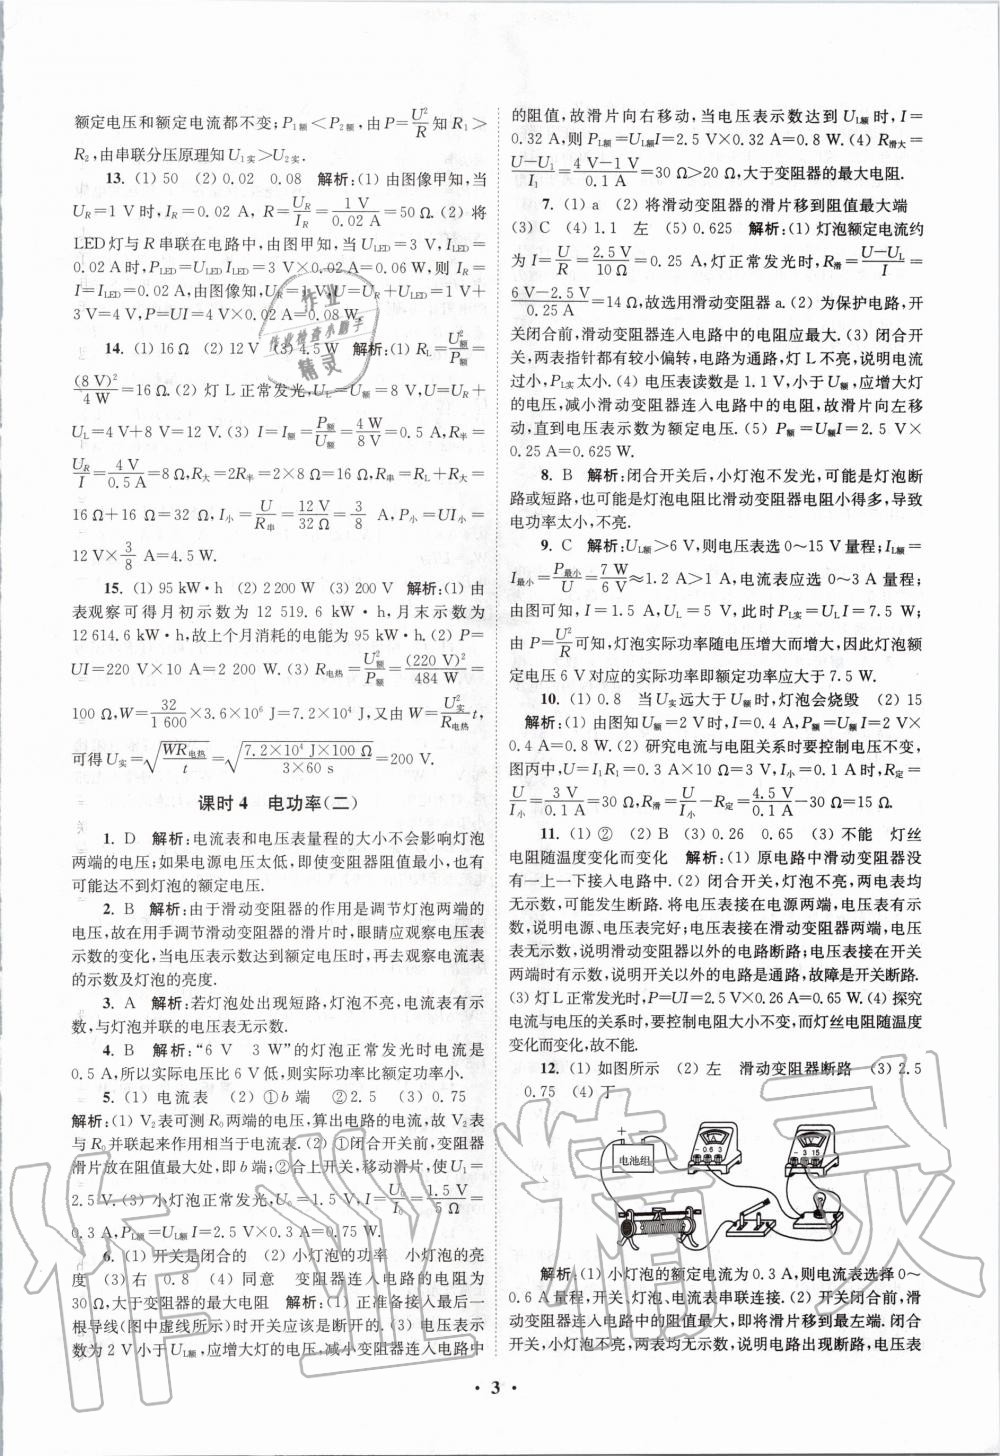 额定电压和额定电流都不变;P1额<P2额,由P=U²/R知R1>
R2,由串联分压原理知U1实>U2实.
13. (1) 50 (2) 0.02 0.08 解析:(1) 由图像甲知,当
UR=1 V时,IR=0.02 A,R=UR/IR=1 V/0.02 A=50 Ω.(2) 将
LED灯与R串联在电路中,由图甲知,当ULED=3 V,ILED=
0.02 A时,PLED=ULED ILED=3 V×0.02 A=0.06 W,则IR=
I=ILED=0.02 A,由图像知,UR=1 V,U=UR+ULED=1 V+
3 V=4 V,P=UI=4 V×0.02 A=0.08 W.
14. (1) 16 Ω (2) 12 V (3) 4.5 W 解析:(1) RL=U²额/P额=
(8 V)²/4 W=16 Ω.(2) 灯L正常发光,UL=U额=8 V,U=UR+
UL=4 V+8 V=12 V.(3) I=I额=P额/U额=4 W/8 V=0.5 A,R半=
UR/I=4 V/0.5 A=8 Ω,R大=2R半=2×8 Ω=16 Ω,R串=RL+R大=
16 Ω+16 Ω=32 Ω,I小=U/R串=12 V/32 Ω=3/8 A,P小=UI小=
12 V×3/8 A=4.5 W.
15. (1) 95 kW·h (2) 2 200 W (3) 200 V 解析:(1) 由
表观察可得月初示数为12 519.6 kW·h,月末示数为
12 614.6 kW·h,故上个月消耗的电能为95 kW·h.(2) P=
UI=220 V×10 A=2 200 W.(3) R电热=U²额/P额=(220 V)²/484 W=
100 Ω,W=32/1 600×3.6×10⁶ J=7.2×10⁴ J,又由W=U²实/R电热 t,
可得U实=√(WR电热/t)=√(7.2×10⁴ J×100 Ω/3×60 s)=200 V.
课时4 电功率(二)
1. D 解析:电流表和电压表量程的大小不会影响灯泡
两端的电压;如果电源电压太低,即使变阻器阻值最小,也有
可能达不到灯泡的额定电压.
2. B 解析:由于滑动变阻器的作用是调节灯泡两端的
电压,故在用手调节滑动变阻器的滑片时,眼睛应观察电压表
示数的变化,当电压表示数达到额定电压时,再去观察电流表
的示数及灯泡的亮度.
3. A 解析:若灯泡处出现短路,灯泡不亮,电流表有示
数,与灯泡并联的电压表无示数.
4. B 解析:“6 V 3 W”的灯泡正常发光时电流是
0.5 A,所以实际电压比6 V低,则实际功率比额定功率小.
5. (1) 电流表 (2) ①b端 ②2.5 (3) 0.75
解析:(1) V2表可测R0两端的电压,算出电路的电流,故V2表
与R0并联起来作用相当于电流表.(2) ①闭合开关前,变阻器
滑片放在阻值最大处,即b端;②合上开关,移动滑片,使U1=
2.5 V.(3) 小灯泡正常发光,U0=1.5 V,I=U0/R0=1.5 V/5 Ω=
0.3 A,PL额=UL额I=2.5 V×0.3 A=0.75 W.
6. (1) 开关是闭合的 (2) 小灯泡的功率 小灯泡的亮
度 (3) 右 0.8 (4) 同意 变阻器连入电路的电阻为
30 Ω,大于变阻器的最大电阻 解析:(1) 正准备接入最后一
根导线(图中虚线所示)时开关应该是断开的.(3) 电压表示
数为2 V小于UL额,应增大灯的电压,减小变阻器连入电路中
的阻值,故滑片向右移动,当电压表示数达到UL额时,I=
0.32 A,则PL额=UL额I=2.5 V×0.32 A=0.8 W.(4) R滑大=
U-U1/I1=4 V-1 V/0.1 A=30 Ω>20 Ω,大于变阻器的最大电阻.
7. (1) a (2) 将滑动变阻器的滑片移到阻值最大端
(3) C (4) 1.1 左 (5) 0.625 解析:(1) 灯泡额定电流约
为I=U/R=2.5 V/10 Ω=0.25 A,灯正常发光时,R滑=U-UL/I=
6 V-2.5 V/0.25 A=14 Ω,故选用滑动变阻器a.(2) 为保护电路,开
关闭合前,滑动变阻器连入电路中的电阻应最大.(3) 闭合开
关,两表指针都有较小偏转,电路为通路,灯L不亮,说明电流
过小,PL实太小.(4) 电压表读数是1.1 V,小于U额,应增大灯
的电压,减小滑动变阻器连入电路中的电阻,故滑片向左移
动,直到电压表示数为额定电压.(5) P额=U额I=2.5 V×
0.25 A=0.625 W.
8. B 解析:闭合开关后,小灯泡不发光,可能是灯泡断
路或短路,也可能是灯泡电阻比滑动变阻器电阻小得多,导致
电功率太小,不亮.
9. C 解析:UL额>6 V,则电压表选0~15 V量程;IL额=
I最小=P最小/U=7 W/6 V≈1.2 A>1 A,电流表应选0~3 A量程;
由图可知,I=1.5 A,UL=5 V,此时PL实=ULI=7.5 W;
由P=U²/R可知,灯泡实际功率随电压增大而增大,因此灯泡额
定电压6 V对应的实际功率即额定功率应大于7.5 W.
10. (1) 0.8 当U实远大于U额时,灯泡会烧毁 (2) 15
解析:(1) 由图知U额=2 V时,I=0.4 A,P额=U额I=2 V×
0.4 A=0.8 W.(2) 研究电流与电阻关系时要控制电压不变,
图丙中,U=I1R1=0.3 A×10 Ω=3 V,I小=0.1 A时,R定=
U/I小=3 V/0.1 A=30 Ω,R滑=U/I小-R定=4.5 V/0.1 A-30 Ω=15 Ω.
11. (1) ② (2) B (3) 0.26 0.65 (3) 不能 灯丝
电阻随温度变化而变化 解析:(1) 原电路中滑动变阻器没
有一上一下接入电路中.(2) 闭合开关,灯泡不亮,两电表均
无示数,可能发生断路.将电压表接在电源两端,电压表有示
数,说明电源、电压表完好;电压表接在滑动变阻器两端,电压
表无示数,说明滑动变阻器以外的电路断路;电压表接在开关
两端时有示数,说明开关以外的电路是通路,故障是开关断路.
(3) 灯L正常发光时,P=UI=2.5 V×0.26 A=0.65 W.(4) 探究
电流与电压的关系时,要控制电阻大小不变,而灯丝电阻随温度
变化而变化,故不能.
12. (1) 如图所示 (2) 左 滑动变阻器断路 (3) 2.5
0.75 (4) 丁
+ −
电池组
A
- 0.6 3
V
- 3 15
解析:(1) 小灯泡的额定电流为0.3 A,则电流表选择0~
0.6 A量程,开关、灯泡、电流表串联连接.(2) 开关闭合前,滑
动变阻器连入电路中的阻值最大,即将滑片移到最左端.闭合
开关,小灯泡不亮,电流表无示数,说明电路出现断路,电压表
· 3 ·
作业
作业检查小助手
精灵
作业精灵